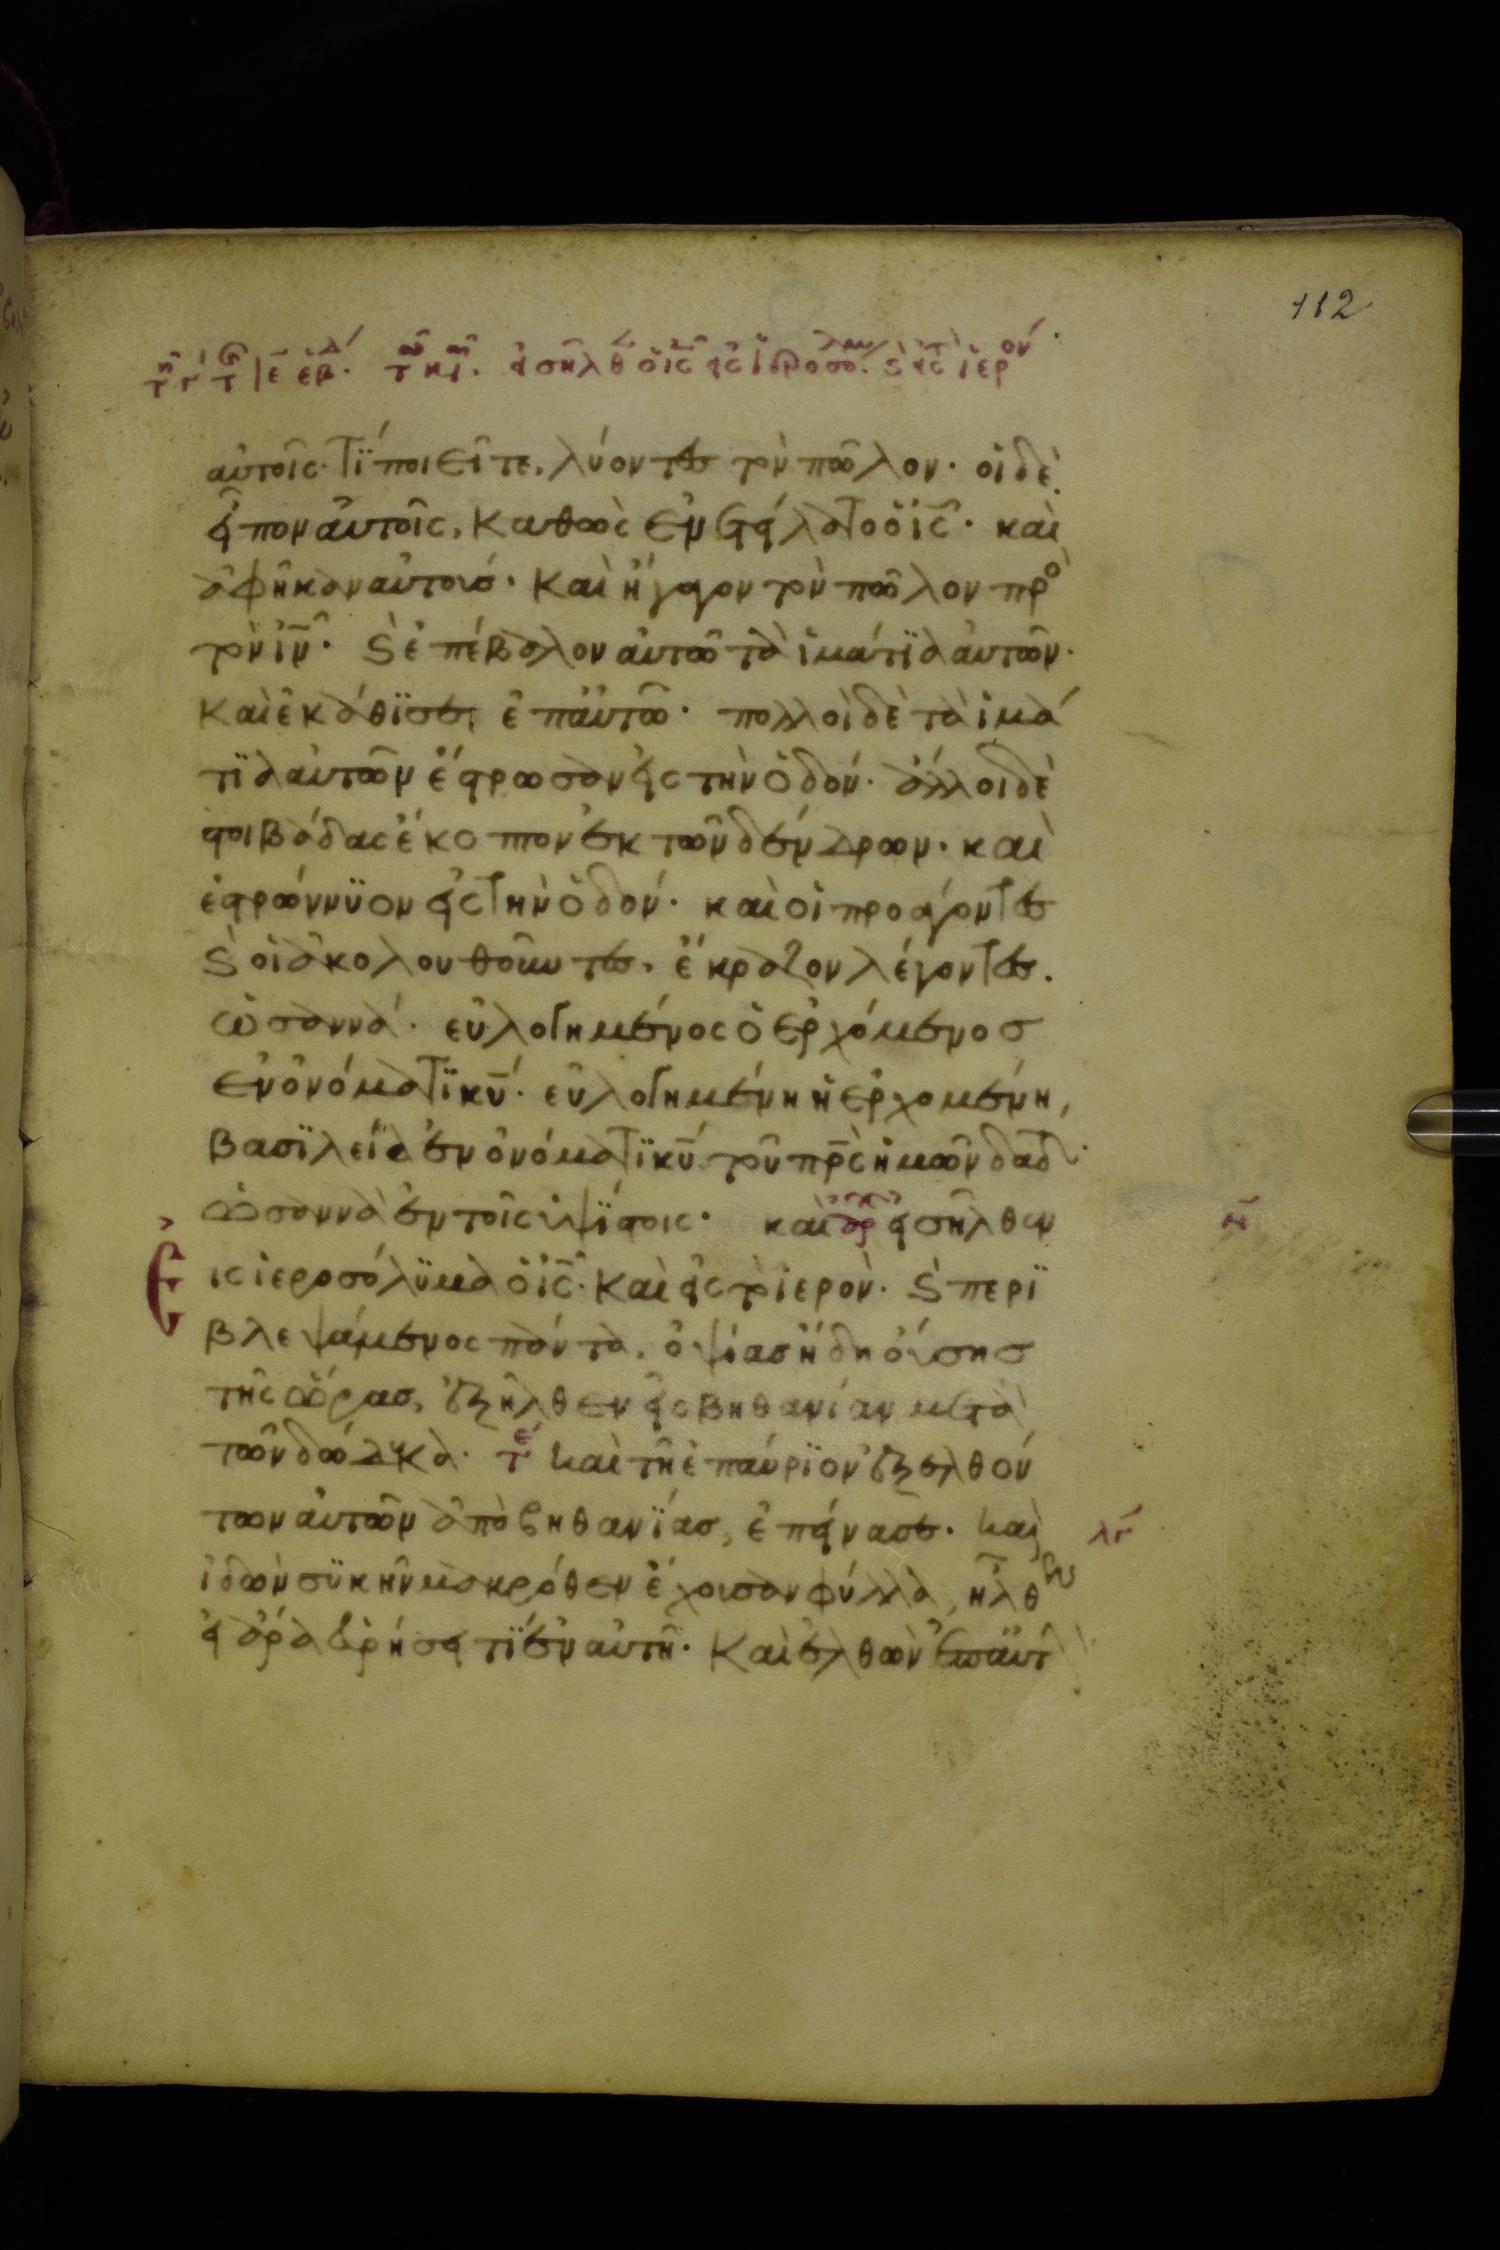 112
τῇ γ τ ιε ἑβδ. τω κ. εἰσῆλθ ὁ ις εἰς ἱεροσολυμ. ϗ εἰς τ ἱερόν
αὐτοῖς· τί ποιεῖτε, λύοντες τὸν πῶλον· οἱ δὲ
εἶπον αὐτοῖς, καθὼς ἐνετείλατο ὁ ις· καὶ
ἀφῆκαν αὐτούσ· καὶ ἤγαγον τὸν πῶλον πρὸ
τὸν ιν· ϗ ἐπέβαλον αὐτῶ τὰ ἱμάτϊα αὐτῶν·
καὶ ἐκάθϊσεν ἐπ αὐτῶ· πολλοὶ δὲ τὰ ἱμά
τϊα αὐτῶν ἔστρωσαν εἰς τὴν ὁδόν· ἄλλοι δὲ
στοιβάδας ἔκοπτον ἐκ τῶν δένδρων· καὶ
ἐστρώννϋον εἰς τὴν ὁδόν· καὶ οἱ προάγοντες
ϗ οἱ ἀκολουθοῦντες, ἔκραζον λέγοντες.
ὡσαννά· εὐλογημένος ὁ ἐρχόμενοσ
ἐν ὀνόματϊ κυ· εὐλογημένη ἡ ἐρχομένη,
βασϊλεία ἐν ὀνόματϊ κυ τοῦ πρς ἡμῶν δαδ·
ὡσαννὰ ἐν τοῖς ὑψϊστοις· καὶ αρχ εἰσῆλθεν
Εἰς ἱεροσόλϋμα ὁ ις· καὶ εἰς τὸ ἱερὸν· ϗ περϊ
βλεψάμενος πάντα, ὀψίασ ἤδη οὔσησ
τῆς ὥρασ, ἐξῆλθεν εἰς βηθανίαν μετὰ
τῶν δώδεκα· τε καὶ τῆ ἐπαύρϊον ἐξελθόν
των αὐτῶν ἀπὸ βηθανϊάσ, ἐπείνασε· καὶ
ἰδὼν συκῆν μακρόθεν ἔχουσαν φύλλα, ἦλθεν
εἰ ἄρα εὑρήσει τϊ ἐν αὐτῆ· καὶ ἐλθὼν ἐπ αὐτ